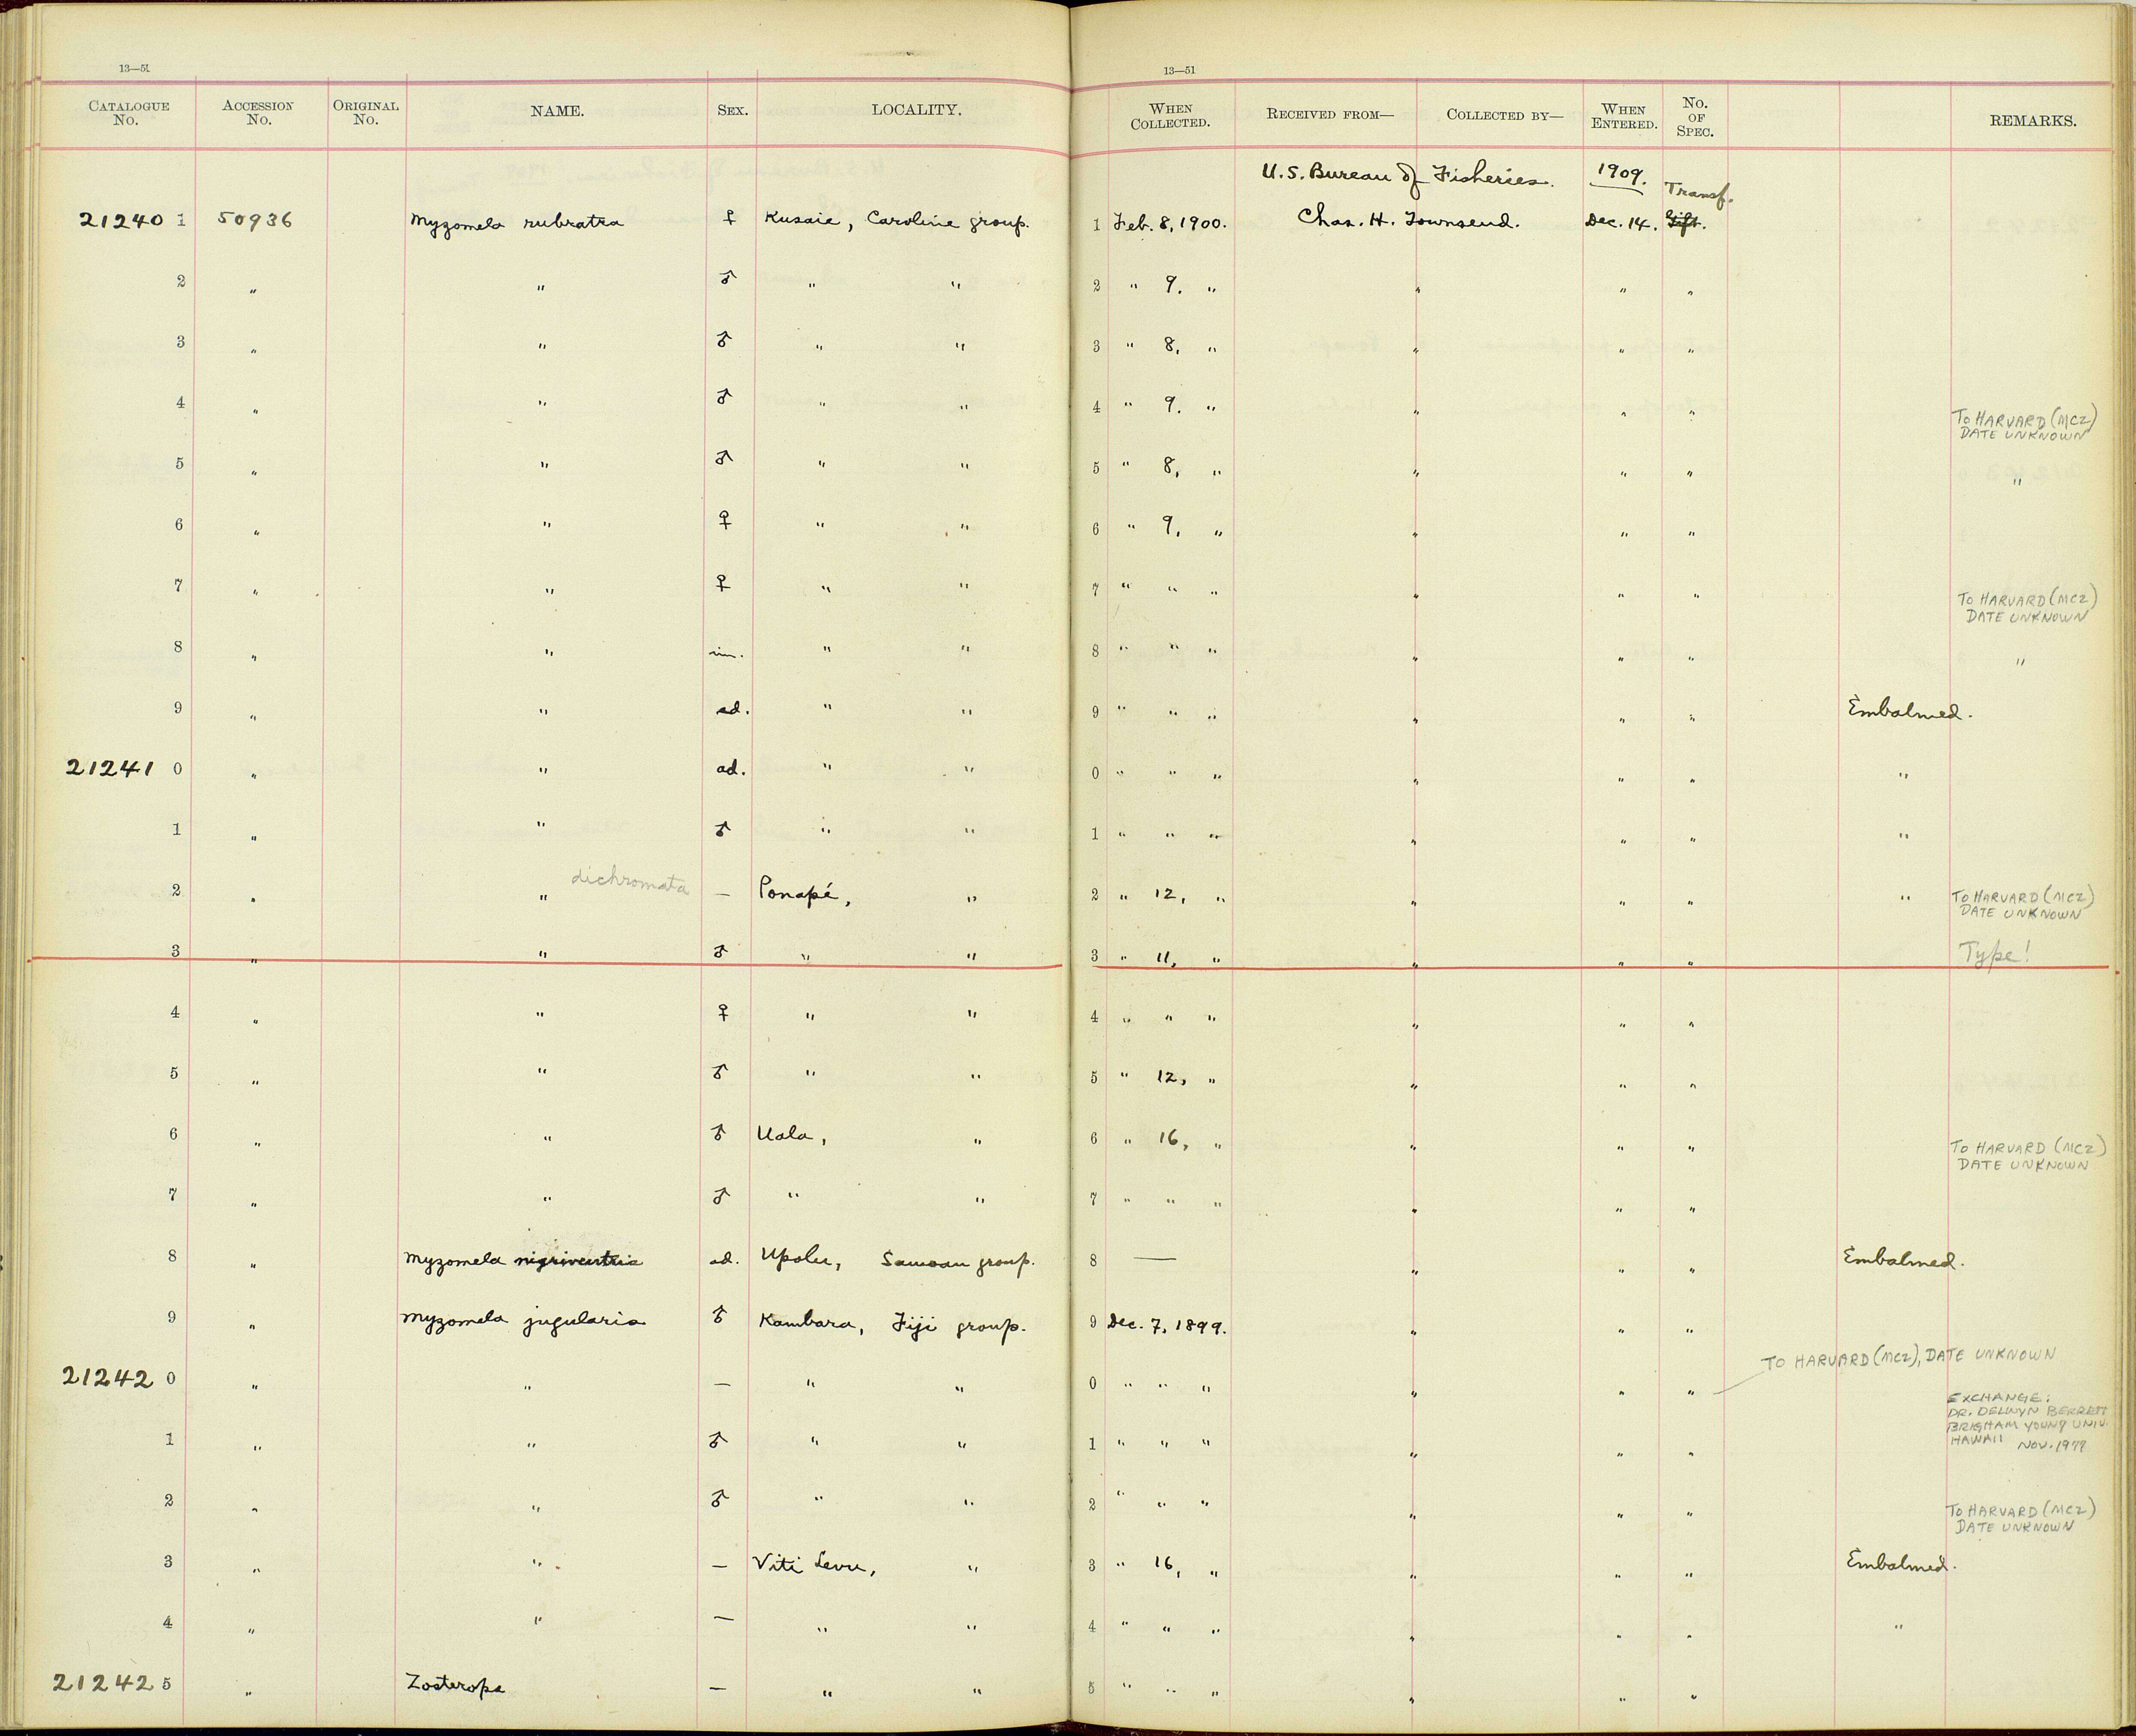 13—51
13—51
CATALOGUE No. ACCESSION No. ORIGINAL No. NAME. SEX. LOCALITY. WHEN COLLECTED. RECEIVED FROM— COLLECTED BY— WHEN ENTERED. No. OF SPEC. REMARKS.
U.S. Bureau of Fisheries. 1909. Transf.
21240 1 50936 Myzomela rubratra ♀ Kusaie, Caroline group. 1 Feb. 8, 1900. Chas. H. Townsend. Dec. 14. Gift.
2 " " ♂ " " 2 " 9. " " " "
3 " " ♂ " " 3 " 8, " " " "
4 " " ♂ " " 4 " 9. " " " " TO HARVARD (MCZ) DATE UNKNOWN
5 " " ♂ " " 5 " 8, " " " " "
6 " " ♀ " " 6 " 9, " " " "
7 " " ♀ " " 7 " " " " " " TO HARVARD (MCZ) DATE UNKNOWN
8 " " im. " " 8 " " " " " " "
9 " " ad. " " 9 " " " " " " Embalmed.
21241 0 " " ad. " " 0 " " " " " " "
1 " " ♂ " " 1 " " " " " " "
2 " " dichromata — Ponapé, " 2 " 12, " " " " " TO HARVARD (MCZ) DATE UNKNOWN
3 " " ♂ " " 3 " 11, " " " " Type!
4 " " ♀ " " 4 " " " " " "
5 " " ♂ " " 5 " 12, " " " "
6 " " ♂ Uala, " 6 " 16, " " " " TO HARVARD (MCZ) DATE UNKNOWN
7 " " ♂ " " 7 " " " " " "
8 " Myzomela nigriventris ad. Upolu, Samoan group. 8 — " " " Embalmed.
9 " Myzomela jugularis ♂ Kambara, Fiji group. 9 Dec. 7, 1899. " " "
21242 0 " " — " " 0 " " " " " " TO HARVARD (MCZ), DATE UNKNOWN
1 " " ♂ " " 1 " " " " " " EXCHANGE: DR. DELWYN BERRETT BRIGHAM YOUNG UNIV. HAWAII NOV. 1977
2 " " ♂ " " 2 " " " " " " TO HARVARD (MCZ) DATE UNKNOWN
3 " " — Viti Levu, " 3 " 16, " " " " Embalmed.
4 " " — " " 4 " " " " " " "
21242 5 " Zosterops — " " 5 " " " " " "